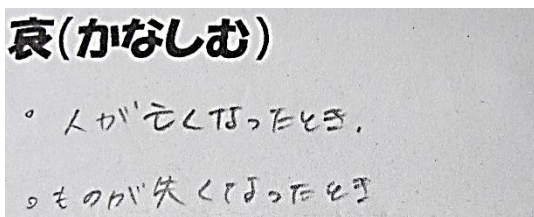 哀(かなしむ)
。人が亡くなったとき.
。ものが失くなったとき